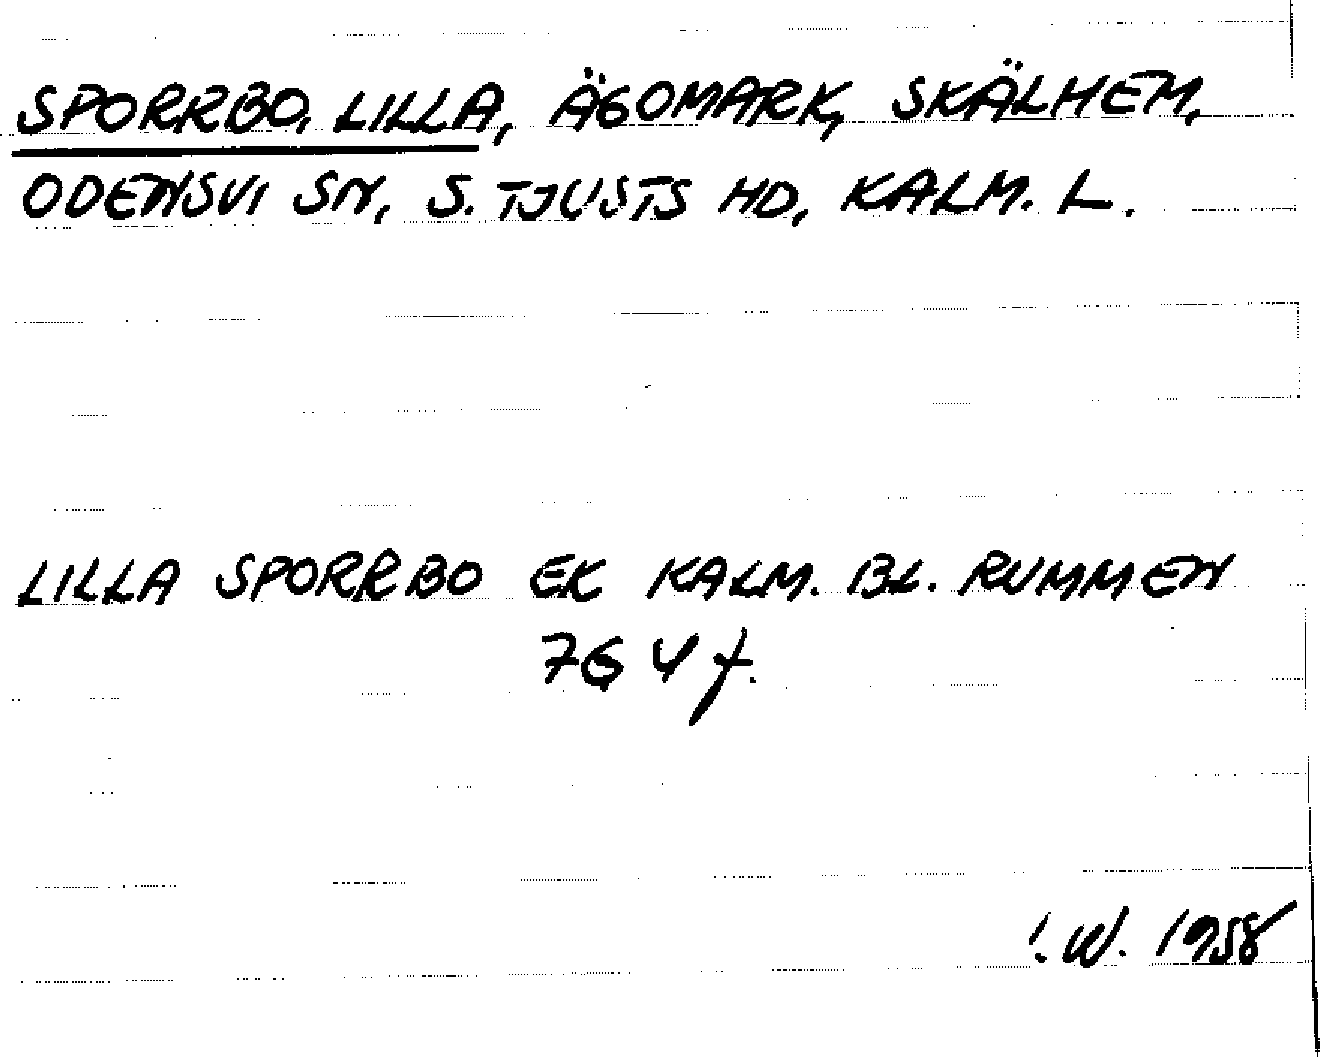 SPORRBO, LILLA, ÄGOMARK, SKÄLHEM,
ODENSVI SN, S. TJUSTS HD, KALM. L.
LILLA SPORRBO EK KALM. BL. RUMMEN
7G 4 f.
!. W. 1958